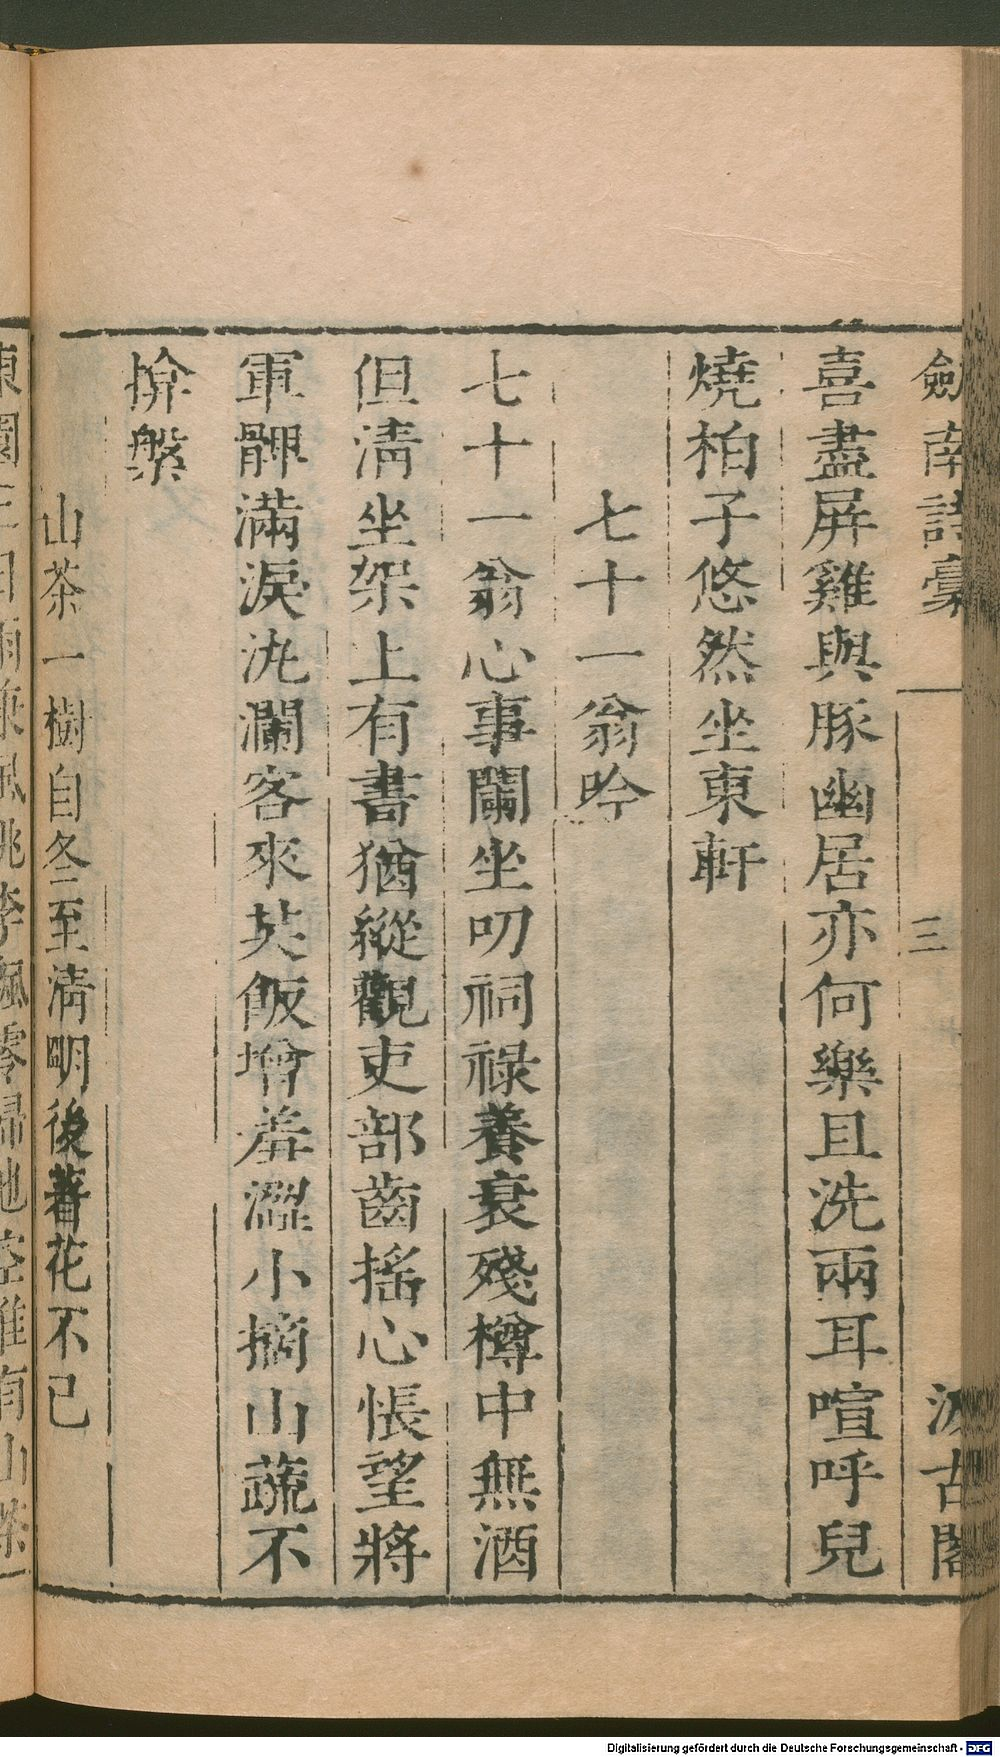 劒南詩稾
三
汲古閣
喜盡屏雞與豚幽居亦何樂且洗兩耳喧呼兒
燒柏子悠然坐東軒
七十一翁吟
七十一翁心事闌坐叨祠祿養衰殘樽中無酒
但清坐架上有書猶縱觀吏部齒搖心悵望將
軍髀滿淚汍瀾客來共飯增羞澀小摘山蔬不
揜槃
山茶一樹自冬至清明後著花不已
東園三日雨兼風桃李飄零掃地空惟有山茶
Digitalisierung gefördert durch die Deutsche Forschungsgemeinschaft - DFG